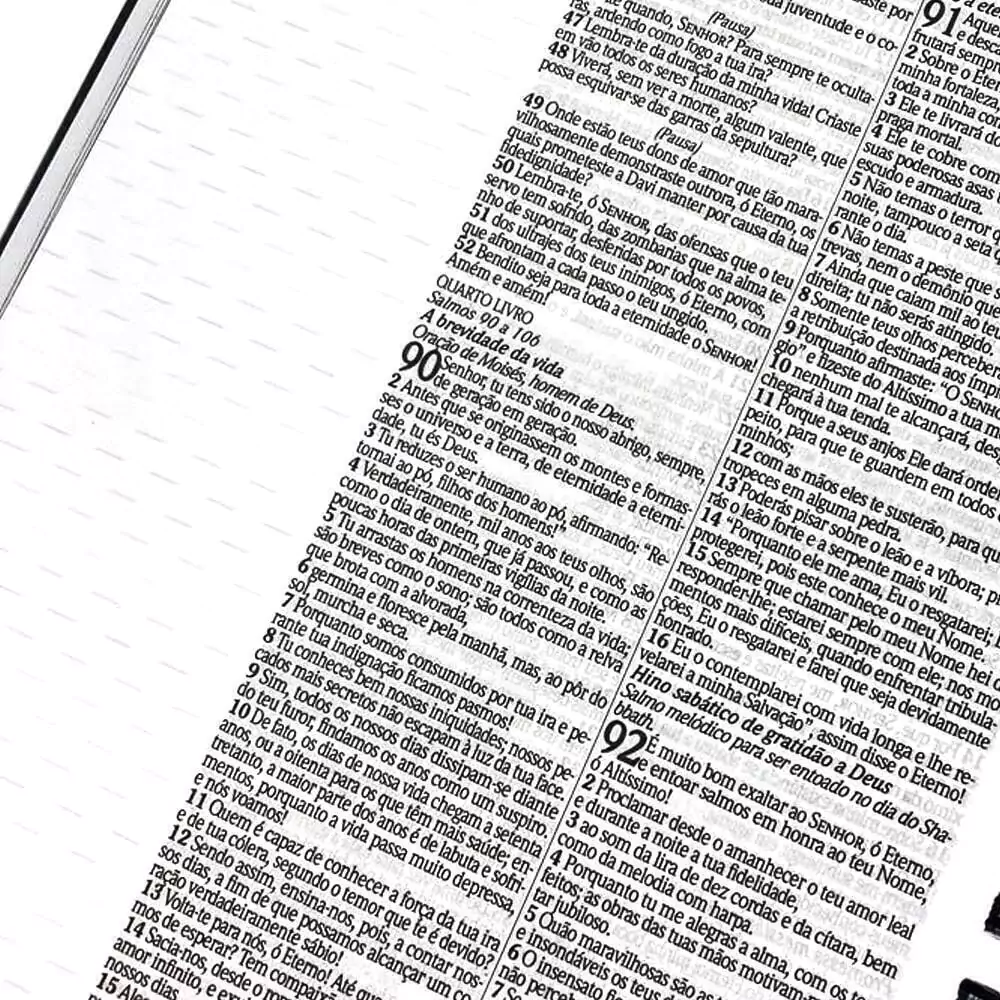 (Pausa)
47 Lembra-te da duração da minha vida! Criaste
em vão todos os seres humanos?
48 Viverá, sem ver a morte, algum valente, que
possa esquivar-se das garras da sepultura?
(Pausa)
49 Onde estão teus dons de amor que tão mara-
vilhosamente demonstraste outrora, ó Eterno, os
quais prometeste a Davi manter por causa da tua
fidedignidade?
50 Lembra-te, ó SENHOR, das ofensas que o teu
servo tem sofrido, das zombarias que na alma te-
nho de suportar, desferidas por todos os povos,
51 dos ultrajes dos teus inimigos, ó Eterno, com
que afrontam a cada passo o teu ungido.
52 Bendito seja para toda a eternidade o SENHOR!
Amém e amém!
QUARTO LIVRO
Salmos 90 a 106
A brevidade da vida
Oração de Moisés, homem de Deus.
90 Senhor, tu tens sido o nosso abrigo, sempre,
de geração em geração.
2 Antes que se originassem os montes e formas-
ses o universo e a terra, de eternidade a eterni-
dade, tu és Deus.
3 Tu reduzes o ser humano ao pó, afirmando: “Re-
tornai ao pó, filhos dos homens!”
4 Verdadeiramente, mil anos aos teus olhos, são
como o dia de ontem, que já passou, e como as
poucas horas das primeiras vigílias da noite.
5 Tu arrastas os homens na correnteza da vida;
são breves como o sono; são todos como a relva
que brota com a alvorada,
6 germina e floresce pela manhã, mas, ao pôr do
sol, murcha e seca.
7 Porquanto somos consumidos por tua ira e pe-
rante tua indignação ficamos pasmos!
8 Tu conheces bem nossas iniquidades; nossos pe-
cados mais secretos não escapam à luz da tua face.
9 Sim, todos os nossos dias dissipam-se diante
do teu furor, findamos os anos como um suspiro.
10 De fato, os dias de nossa vida chegam a setenta
anos, ou a oitenta para os que têm mais saúde; en-
tretanto, a maior parte dos anos é de labuta e sofri-
mentos, porquanto a vida passa muito depressa,
e nós voamos!
11 Quem é capaz de conhecer a força da tua ira
e de tua cólera, segundo o temor que te é devido?
12 Sendo assim, ensina-nos, pois, a contar nos-
sos dias, a fim de que possamos alcançar um co-
ração verdadeiramente sábio!
13 Volta-te para nós, ó Eterno! Até
mos de esperar? Tem compaixão
14 Sacia-nos, desde o
amor infinito, e
nossos dias.
15
91
e desca
frutará sempre
2 Sobre o Eter
minha fortaleza,
toda a minha con
3 Ele te livrará do
praga mortal.
4 Ele te cobre com
suas poderosas asas
escudo e armadura.
5 Não temas o terror d
noite, tampouco a seta q
rante o dia.
6 Não temas a peste que s
trevas, nem o demônio que
7 Ainda que caiam mil ao teu
direita; tu não serás atingido.
8 Somente teus olhos perceberã
a retribuição destinada aos ímpi
9 Porquanto afirmaste: “O SENHO
gio” e fizeste do Altíssimo a tua m
10 nenhum mal te alcançará, desg
chegará à tua tenda.
11 Porque a seus anjos Ele dará orden
peito, para que te guardem em todos o
minhos;
12 com as mãos eles te susterão, para qu
tropeces em alguma pedra.
13 Poderás pisar sobre o leão e a víbora, p
rás o leão forte e a serpente mais vil.
14 “Porquanto ele me ama, Eu o resgatarei;
protegerei, pois este conhece o meu Nome.
15 Sempre que chamar pelo meu Nome hei d
responder-lhe; estarei sempre com ele; nos mo
mentos mais difíceis, quando enfrentar tribula-
ções, Eu o resgatarei e farei que seja devidamente
honrado.
16 Eu o contemplarei com vida longa e lhe re-
velarei a minha Salvação”, assim disse o Eterno!
Hino sabático de gratidão a Deus
Salmo melódico para ser entoado no dia do Sha-
bbath.
92 É muito bom exaltar ao SENHOR, ó Eterno,
e entoar salmos em honra ao teu Nome,
ó Altíssimo!
2 Proclamar desde o amanhecer o teu amor leal
e durante a noite a tua fidelidade,
3 ao som da lira de dez cordas e da cítara, bem
como da melodia com harpa.
4 Porquanto tu me alegras a alma, com os te
feitos; às obras das tuas mãos motivam
tar jubiloso.
5 Quão maravilhosas são as
e insondáveis os teus
6 O insensato
não perceb
7 Se